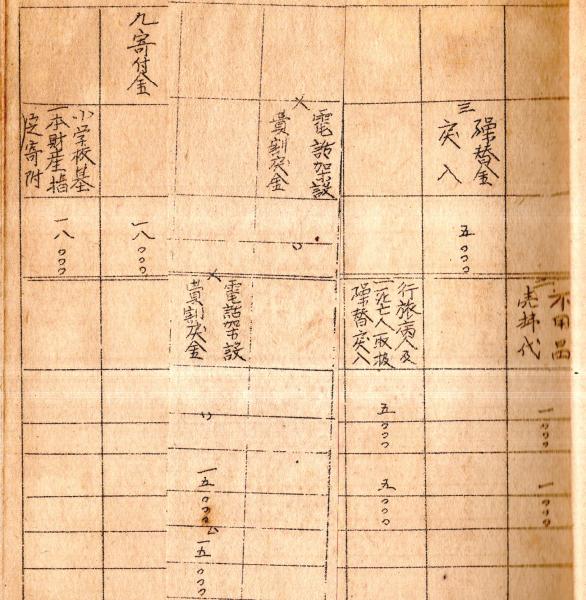 不用品
売拂代
一〇〇〇
一〇〇〇
三
繰替金
戻入
五〇〇〇
行旅病人及
死亡人取扱
繰替戻入
五〇〇〇
五〇〇〇
電話架設
費割戻金
電話架設
費割戻金
一五〇〇〇
一五〇〇〇
九寄付金
一八〇〇〇
小学校基
本財産指
定寄附
一八〇〇〇